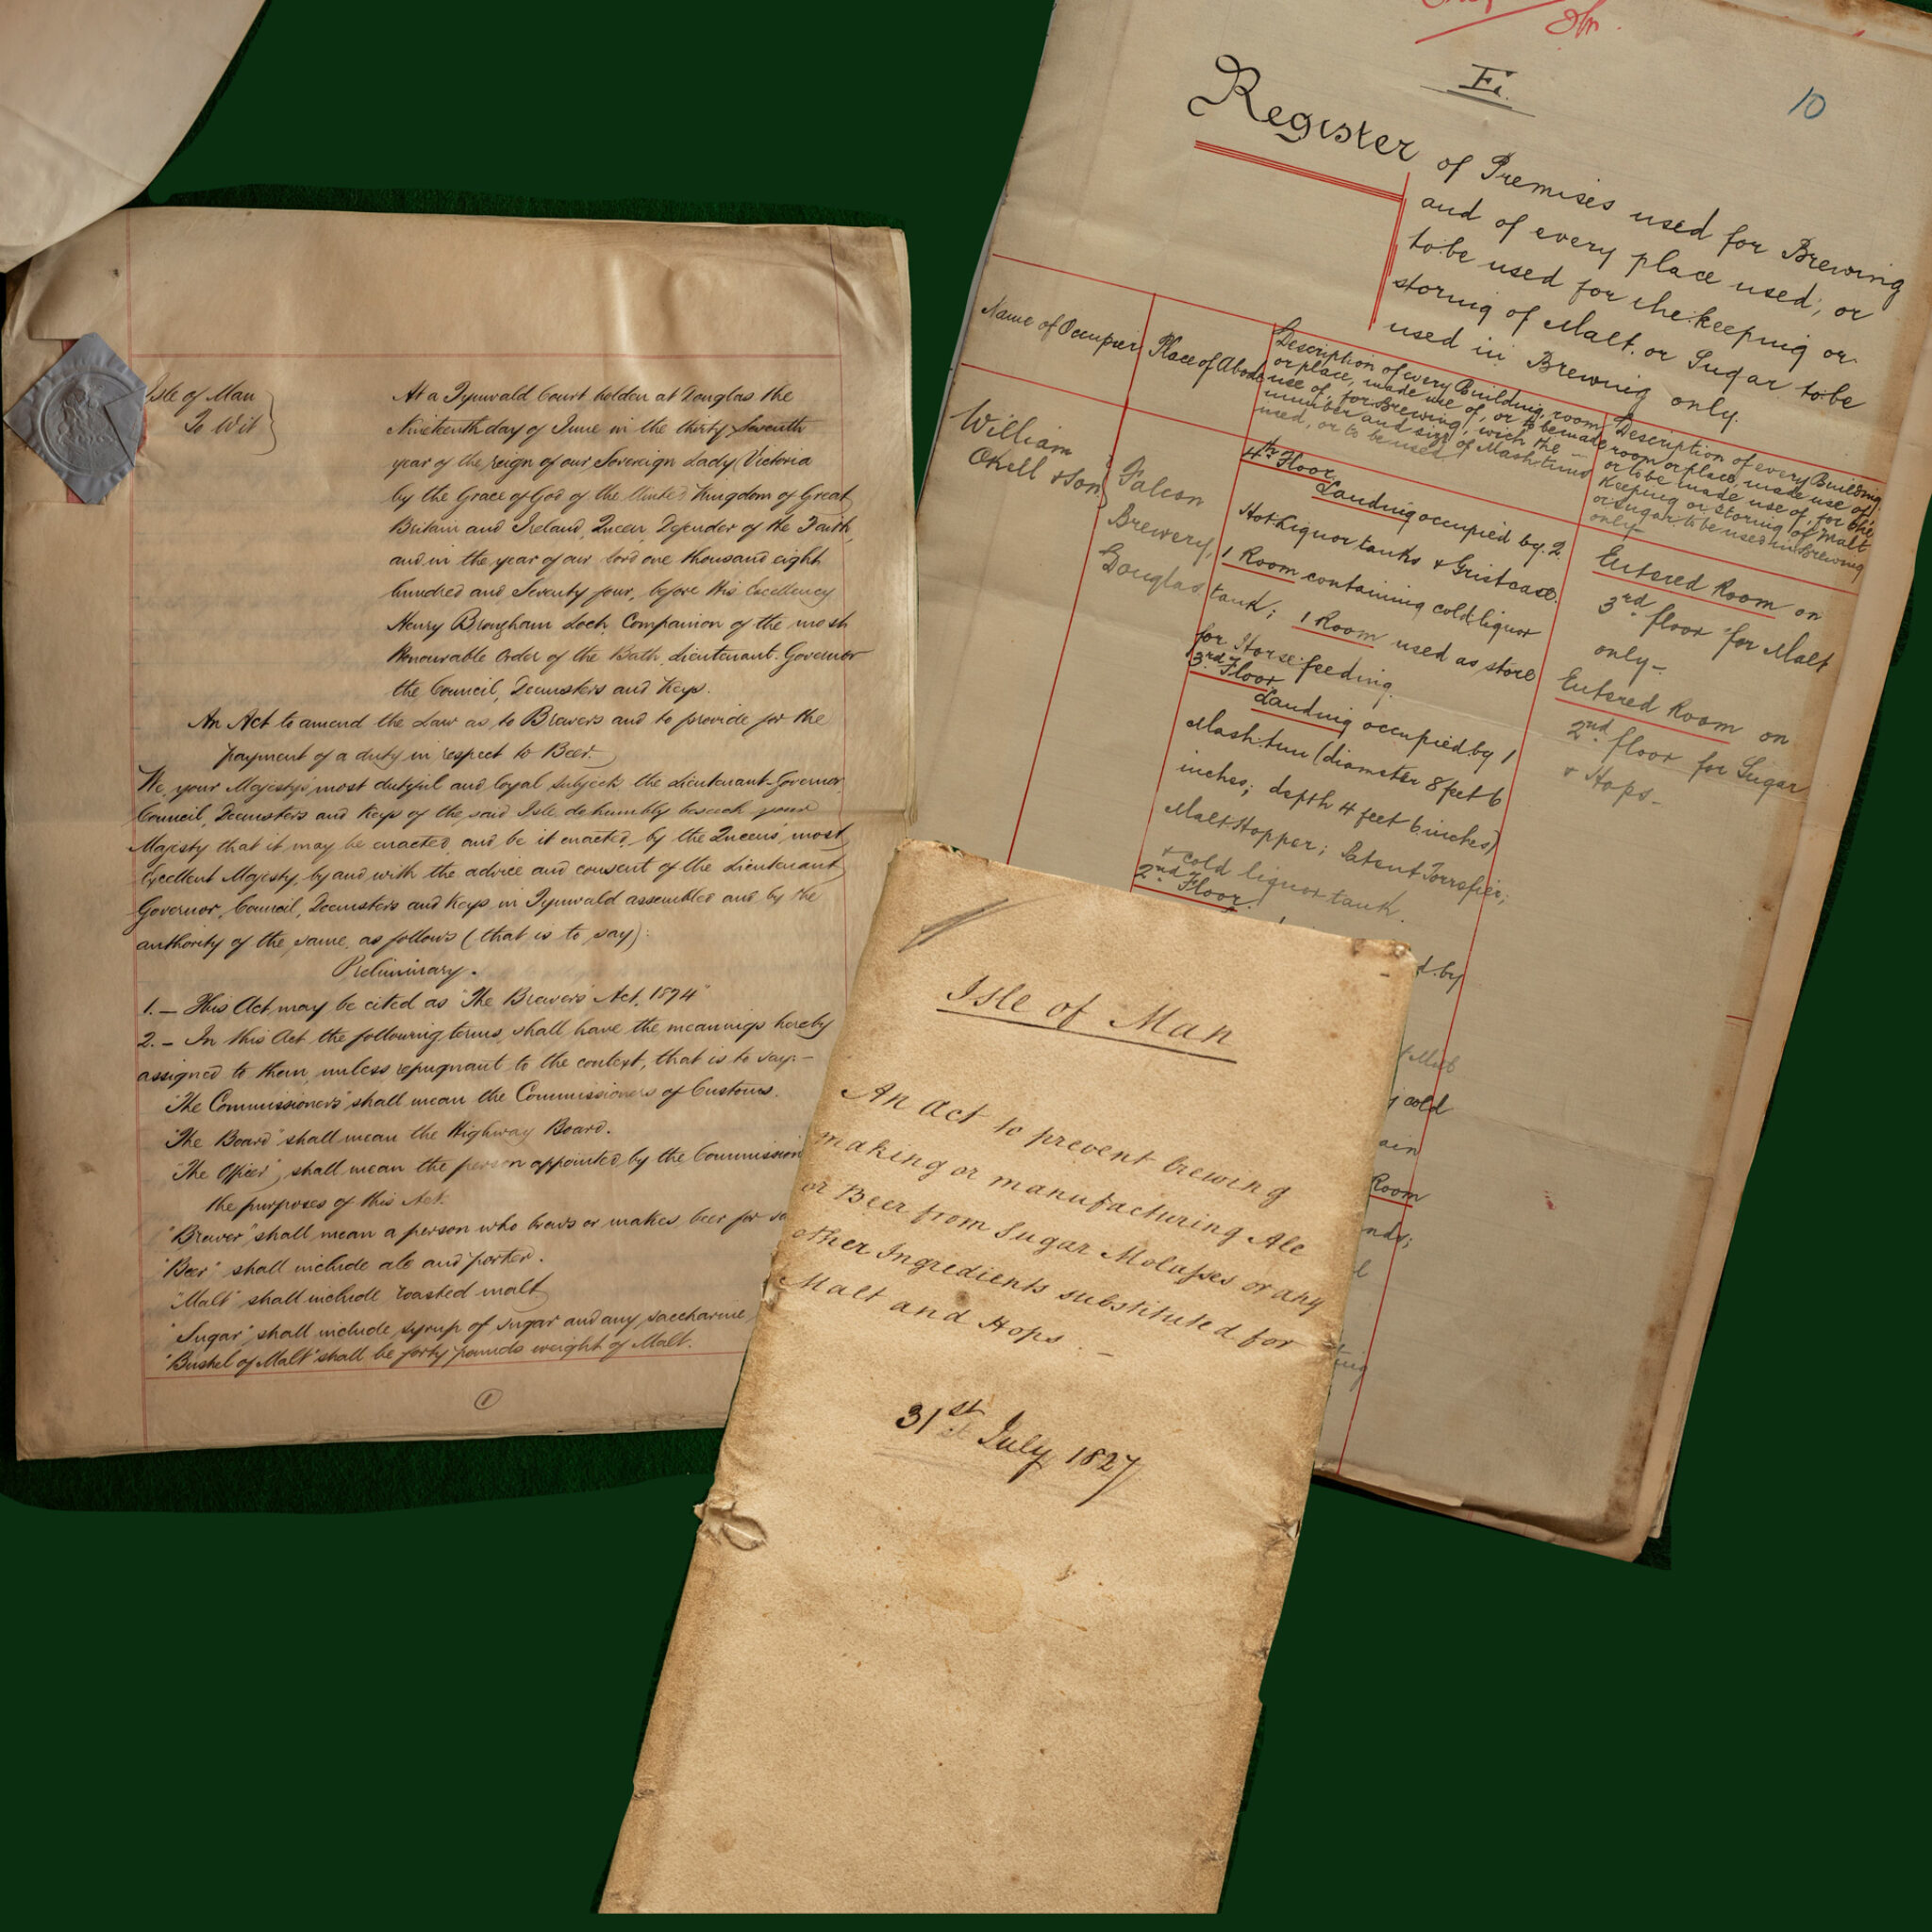 Isle of Man
To Wit
At a Tynwald Court holden at Douglas the
Nineteenth day of June in the thirty seventh
year of the reign of our Sovereign Lady Victoria
by the Grace of God of the United Kingdom of Great
Britain and Ireland, Queen, Defender of the Faith,
and in the year of our Lord one thousand eight
hundred and Seventy four, before His Excellency
Henry Brougham Loch, Companion of the most
Honourable Order of the Bath, Lieutenant-Governor
the Council, Deemsters and Keys.
An Act to amend the Law as to Brewers and to provide for the
payment of a duty in respect to Beer.
We, your Majesty's most dutiful and loyal subjects the Lieutenant-Governor
Council, Deemsters and Keys of the said Isle, do humbly beseech your
Majesty that it may be enacted and be it enacted, by the Queen's most
Excellent Majesty, by and with the advice and consent of the Lieutenant
Governor, Council, Deemsters and Keys in Tynwald assembled and by the
authority of the same, as follows (that is to say):
Preliminary.
1. — This Act may be cited as "The Brewers' Act, 1874"
2. — In this Act the following terms shall have the meanings hereby
assigned to them, unless repugnant to the context, that is to say:—
"The Commissioners" shall mean the Commissioners of Customs.
"The Board" shall mean the Highway Board.
"The Officer", shall mean the person appointed by the Commission
the purposes of this Act.
"Brewer" shall mean a person who brews or makes beer for
"Beer" shall include ale and porter.
"Malt" shall include roasted malt
"Sugar", shall include syrup of sugar and any saccharine
"Bushel of Malt" shall be forty pounds weight of Malt.
1
10
Register of Premises used for Brewing
and of every place used, or
to be used for the keeping or
storing of Malt. or Sugar to be
used in Brewing only.
Name of Occupier
Place of Abode
Description of every Building, room
or place, made use of, or to be made
use of, for Brewing, with the —
number and size of Mash tuns
used, or to be used
Description of every Building,
room or place, made use of
or to be made use of, for the
Keeping or storing of Malt
or Sugar to be used in Brewing
only
William
Okell & Son
Falcon
Brewery,
Douglas
4th Floor
Landing occupied by 2
Hot Liquor tanks & Grist case.
1 Room containing cold liquor
tank; 1 Room used as store
for Horse feeding.
3rd Floor
Landing occupied by 1
Mash tun (diameter 8 feet 6
inches; depth 4 feet 6 inches)
Malt Hopper; Patent Torrefier;
& cold liquor tank.
2nd Floor.
d by
cold
ain
Room
Entered Room on
3rd floor for Malt
only —
Entered Room on
2nd floor for Sugar
& Hops —
Isle of Man
An Act to prevent brewing
making or manufacturing Ale
or Beer from Sugar Molasses or any
other Ingredients substituted for
Malt and Hops —
31st July 1827